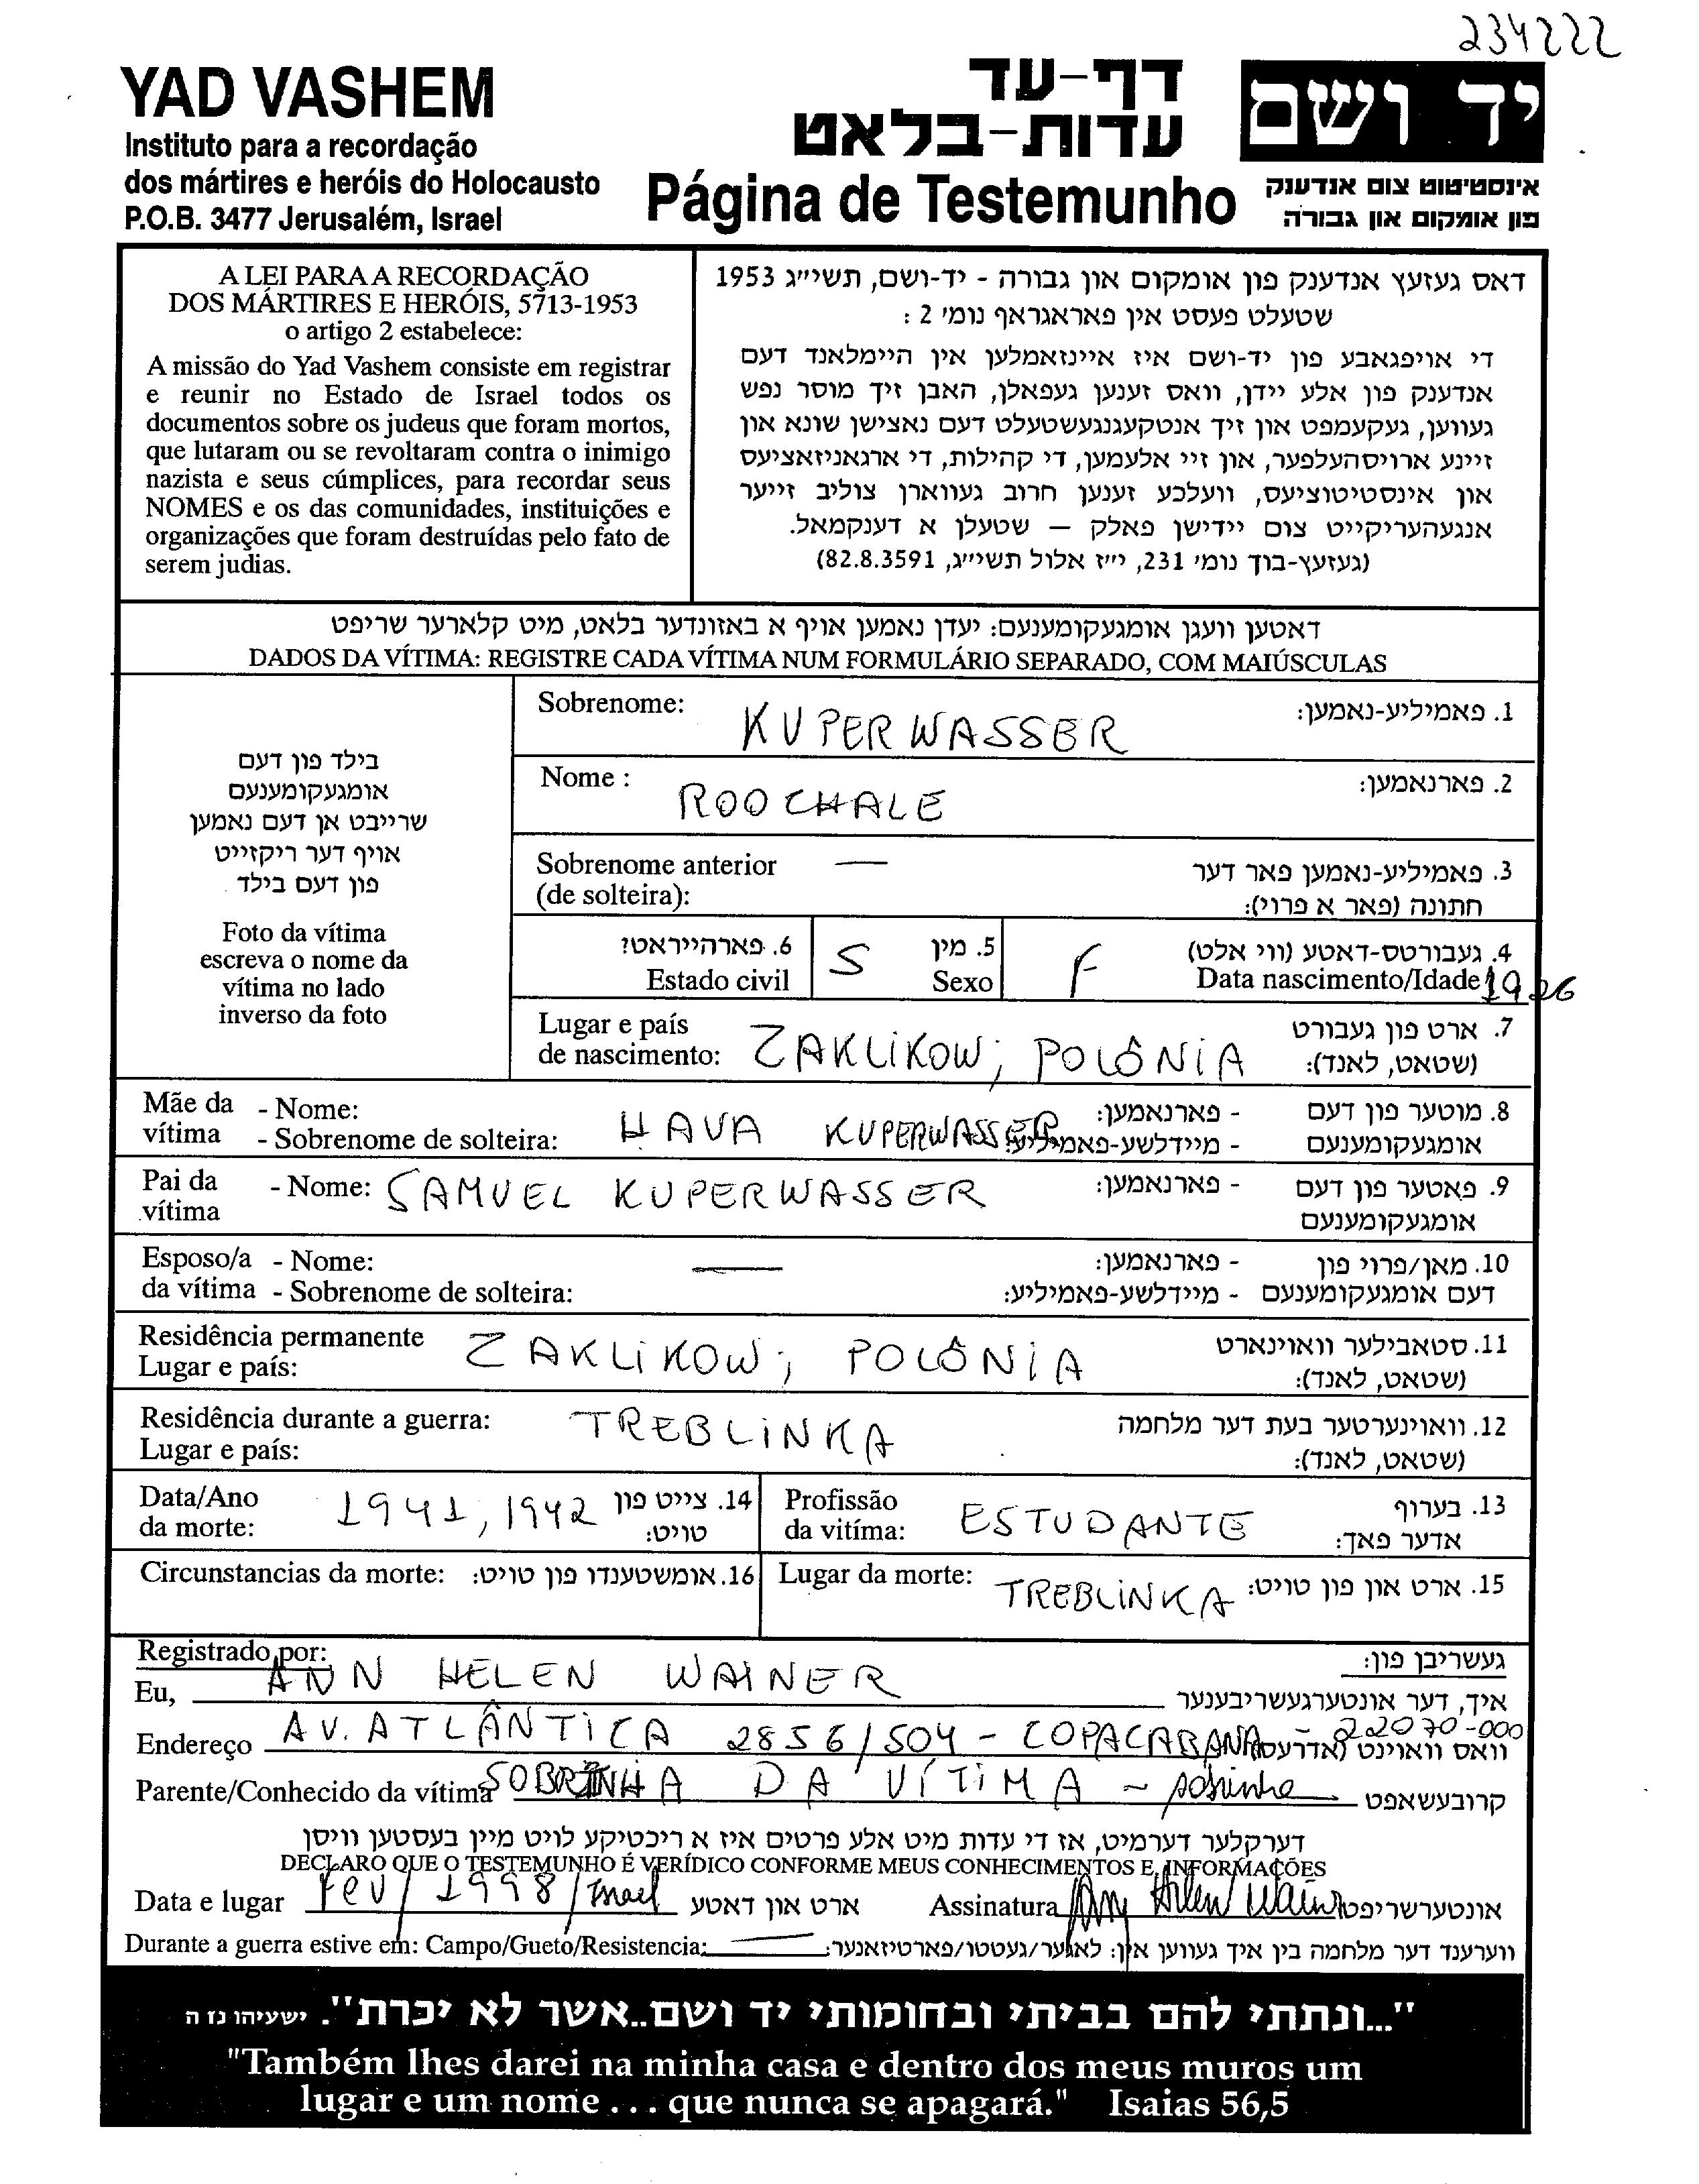 234222
YAD VASHEM
Instituto para a recordação
dos mártires e heróis do Holocausto
P.O.B. 3477 Jerusalém, Israel
דף-עד
עדות-בלאט
Página de Testemunho
יד ושם
אינסטיטוט צום אנדענק
פון אומקום און גבורה
A LEI PARA A RECORDAÇÃO
DOS MÁRTIRES E HERÓIS, 5713-1953
o artigo 2 estabelece:
A missão do Yad Vashem consiste em registrar
e reunir no Estado de Israel todos os
documentos sobre os judeus que foram mortos,
que lutaram ou se revoltaram contra o inimigo
nazista e seus cúmplices, para recordar seus
NOMES e os das comunidades, instituições e
organizações que foram destruídas pelo fato de
serem judias.
דאס געזעץ אנדענק פון אומקום און גבורה - יד-ושם, תשי״ג 1953
שטעלט פעסט אין פאראגראף נומ׳ 2 :
די אויפגאבע פון יד-ושם איז איינזאמלען אין היימלאנד דעם
אנדענק פון אלע יידן, וואס זענען געפאלן, האבן זיך מוסר נפש
געווען, געקעמפט און זיך אנטקעגנגעשטעלט דעם נאצישן שונא און
זיינע ארויסהעלפער, און זיי אלעמען, די קהילות, די ארגאניזאציעס
און אינסטיטוציעס, וועלכע זענען חרוב געווארן צוליב זייער
אנגעהעריקייט צום יידישן פאלק — שטעלן א דענקמאל.
(געזעץ-בוך נומ׳ 231, י״ז אלול תשי״ג, 82.8.3591)
דאטען וועגן אומגעקומענעם: יעדן נאמען אויף א באזונדער בלאט, מיט קלארער שריפט
DADOS DA VÍTIMA: REGISTRE CADA VÍTIMA NUM FORMULÁRIO SEPARADO, COM MAIÚSCULAS
בילד פון דעם
אומגעקומענעם
שרייבט אן דעם נאמען
אויף דער ריקזייט
פון דעם בילד
Foto da vítima
escreva o nome da
vítima no lado
inverso da foto
Sobrenome: KUPERWASSER 1. פאמיליע-נאמען:
Nome : ROOCHALE 2. פארנאמען:
Sobrenome anterior — 3. פאמיליע-נאמען פאר דער
(de solteira): חתונה (פאר א פרוי):
6. פארהייראט? S 5. מין F 4. געבורטס-דאטע (ווי אלט)
Estado civil Sexo Data nascimento/Idade 1926
Lugar e país 7. ארט פון געבורט
de nascimento: ZAKLIKOW; POLÔNIA (שטאט, לאנד):
Mãe da - Nome: - פארנאמען: 8. מוטער פון דעם
vítima - Sobrenome de solteira: HAVA KUPERWASSER - מיידלשע-פאמיליע: אומגעקומענעם
Pai da - Nome: SAMUEL KUPERWASSER - פארנאמען: 9. פאטער פון דעם
vítima אומגעקומענעם
Esposo/a - Nome: — - פארנאמען: 10. מאן/פרוי פון
da vítima - Sobrenome de solteira: - מיידלשע-פאמיליע: דעם אומגעקומענעם
Residência permanente ZAKLIKOW; POLÔNIA 11. סטאבילער וואוינארט
Lugar e país: (שטאט, לאנד):
Residência durante a guerra: TREBLINKA 12. וואוינערטער בעת דער מלחמה
Lugar e país: (שטאט, לאנד):
Data/Ano 1941, 1942 14. צייט פון Profissão ESTUDANTE 13. בערוף
da morte: טויט: da vitíma: אדער פאך:
Circunstancias da morte: 16. אומשטענדן פון טויט: Lugar da morte: TREBLINKA 15. ארט און פון טויט:
Registrado por: געשריבן פון:
Eu, ANN HELEN WAINER איך, דער אונטערגעשריבענער
Endereço AV. ATLÂNTICA 2856/504 - COPACABANA - 22070-000 וואס וואוינט (אדרעס)
Parente/Conhecido da vítima SOBRINHA DA VÍTIMA - sobrinha קרובעשאפט
דערקלער דערמיט, אז די עדות מיט אלע פרטים איז א ריכטיקע לויט מיין בעסטען וויסן
DECLARO QUE O TESTEMUNHO É VERÍDICO CONFORME MEUS CONHECIMENTOS E INFORMAÇÕES
Data e lugar Fev/1998/Israel ארט און דאטע Assinatura Ann Helen Wainer אונטערשריפט
Durante a guerra estive em: Campo/Gueto/Resistencia: — ווערענד דער מלחמה בין איך געווען אין: לאגער/געטטו/פארטיזאנער:
"...ונתתי להם בביתי ובחומותי יד ושם..אשר לא יכרת". ישעיהו נז ה
"Também lhes darei na minha casa e dentro dos meus muros um
lugar e um nome . . . que nunca se apagará." Isaias 56,5